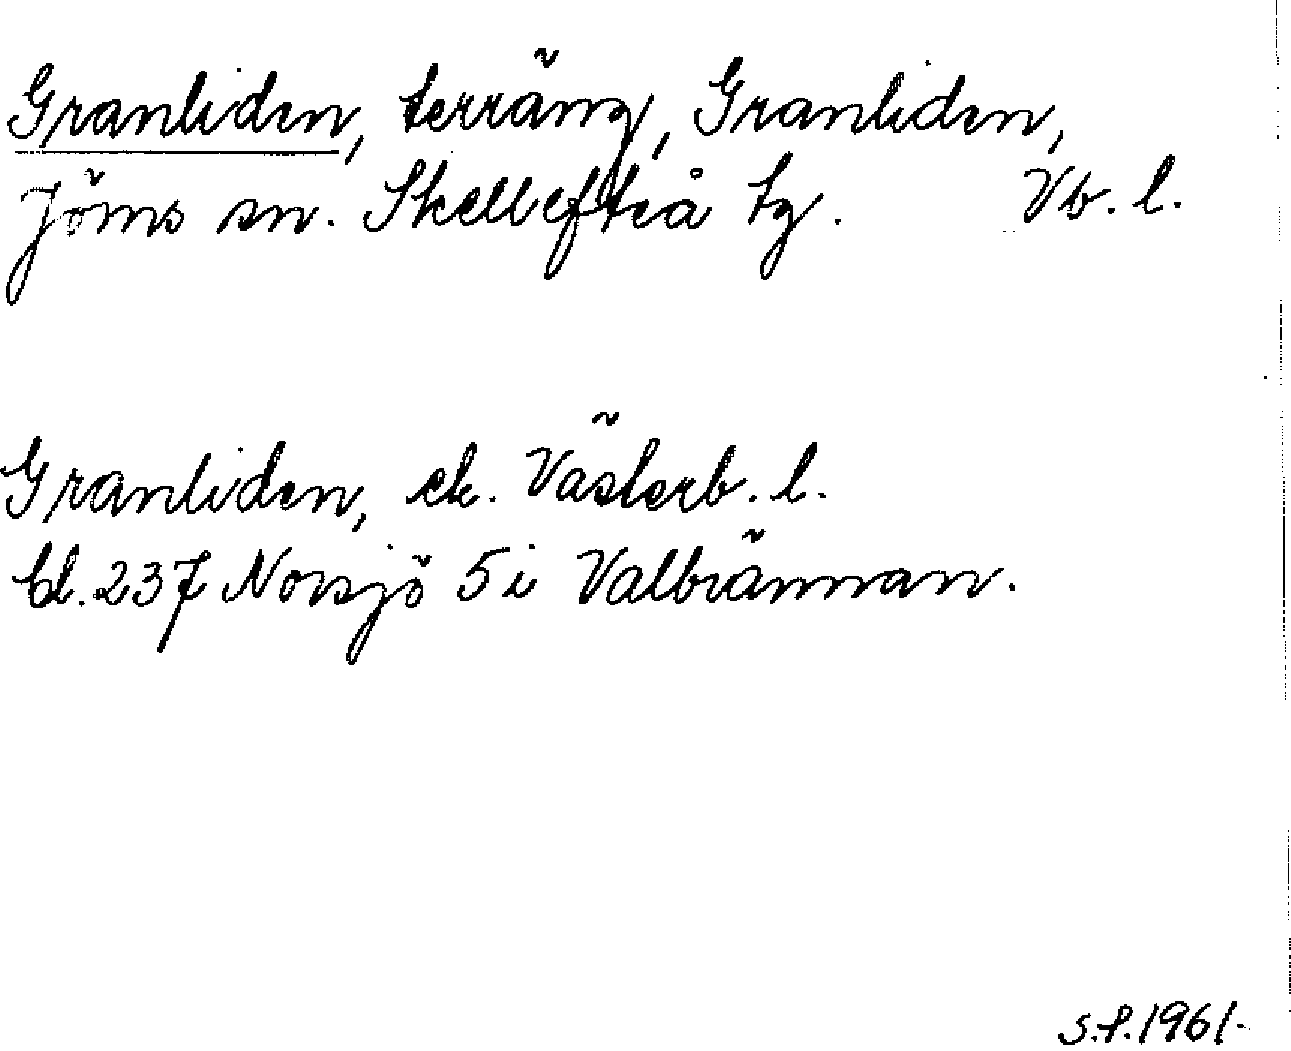 Granliden, terräng, Granliden,
Jörns sn. Skellefteå tg. Vb. l.
Granliden, ek. Västerb. l.
bl. 237 Norsjö 5i Valbrännan.
s.f. 1961.